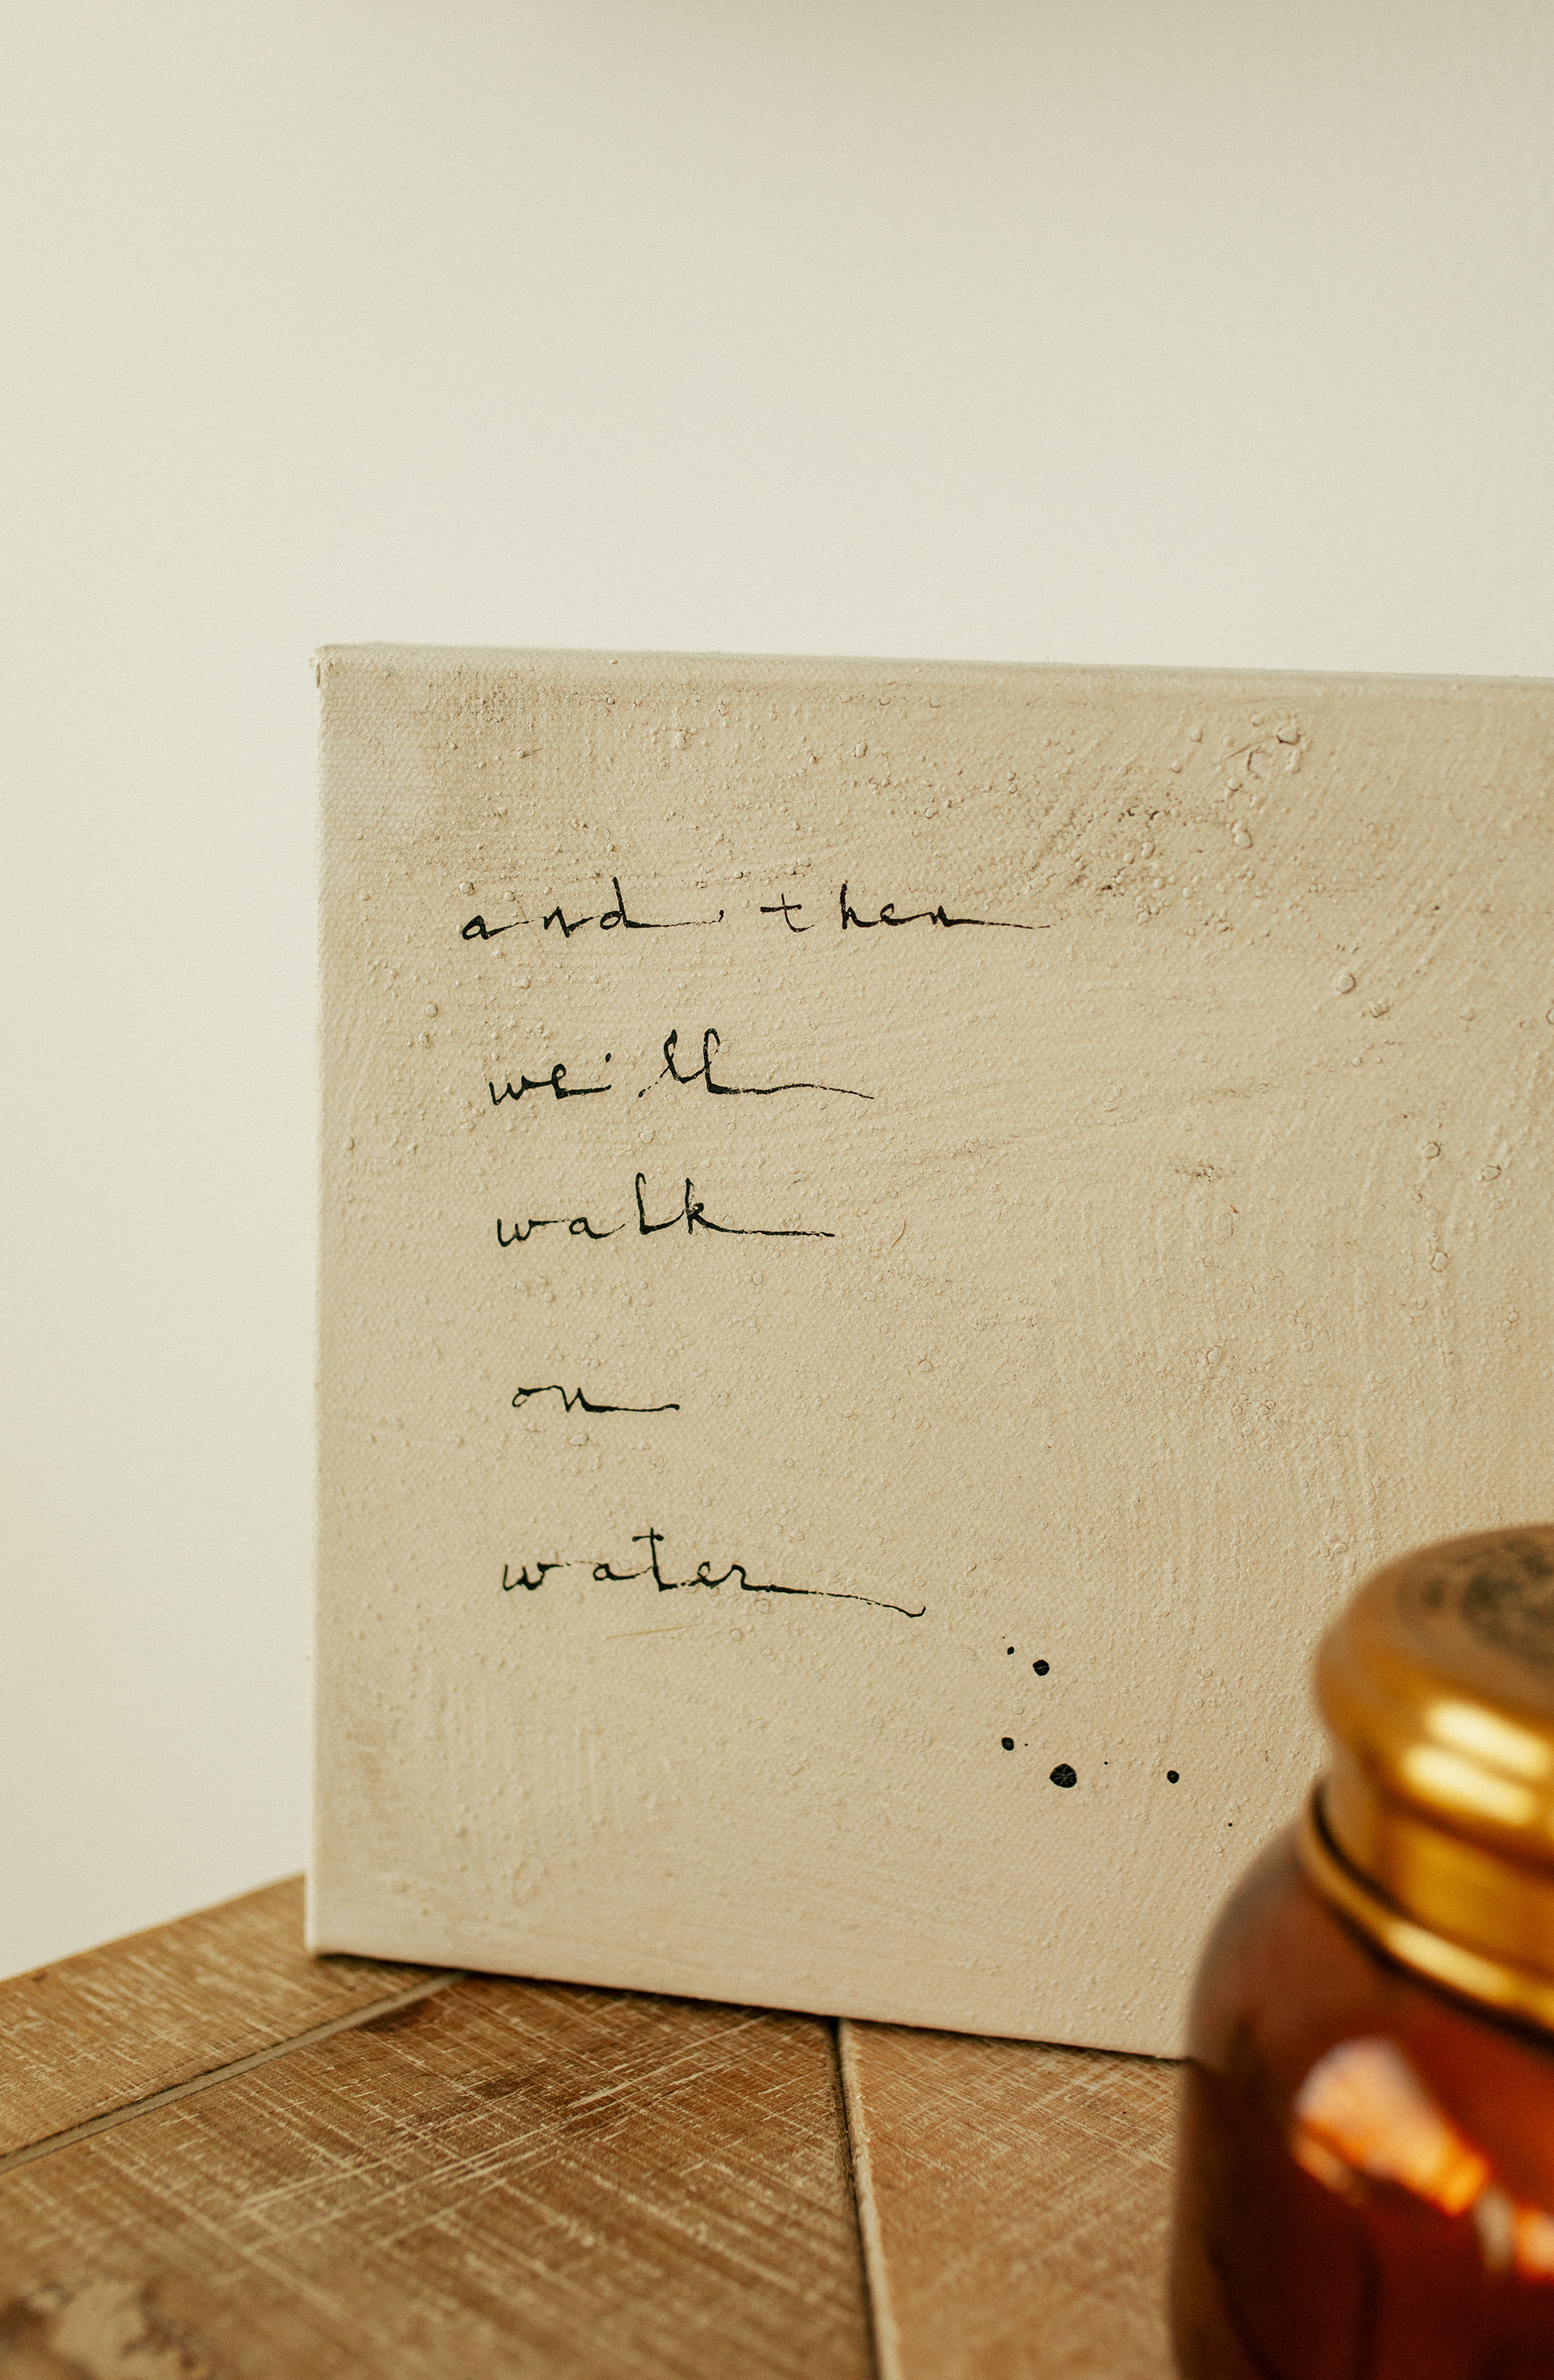 and then
we'll
walk
on
water